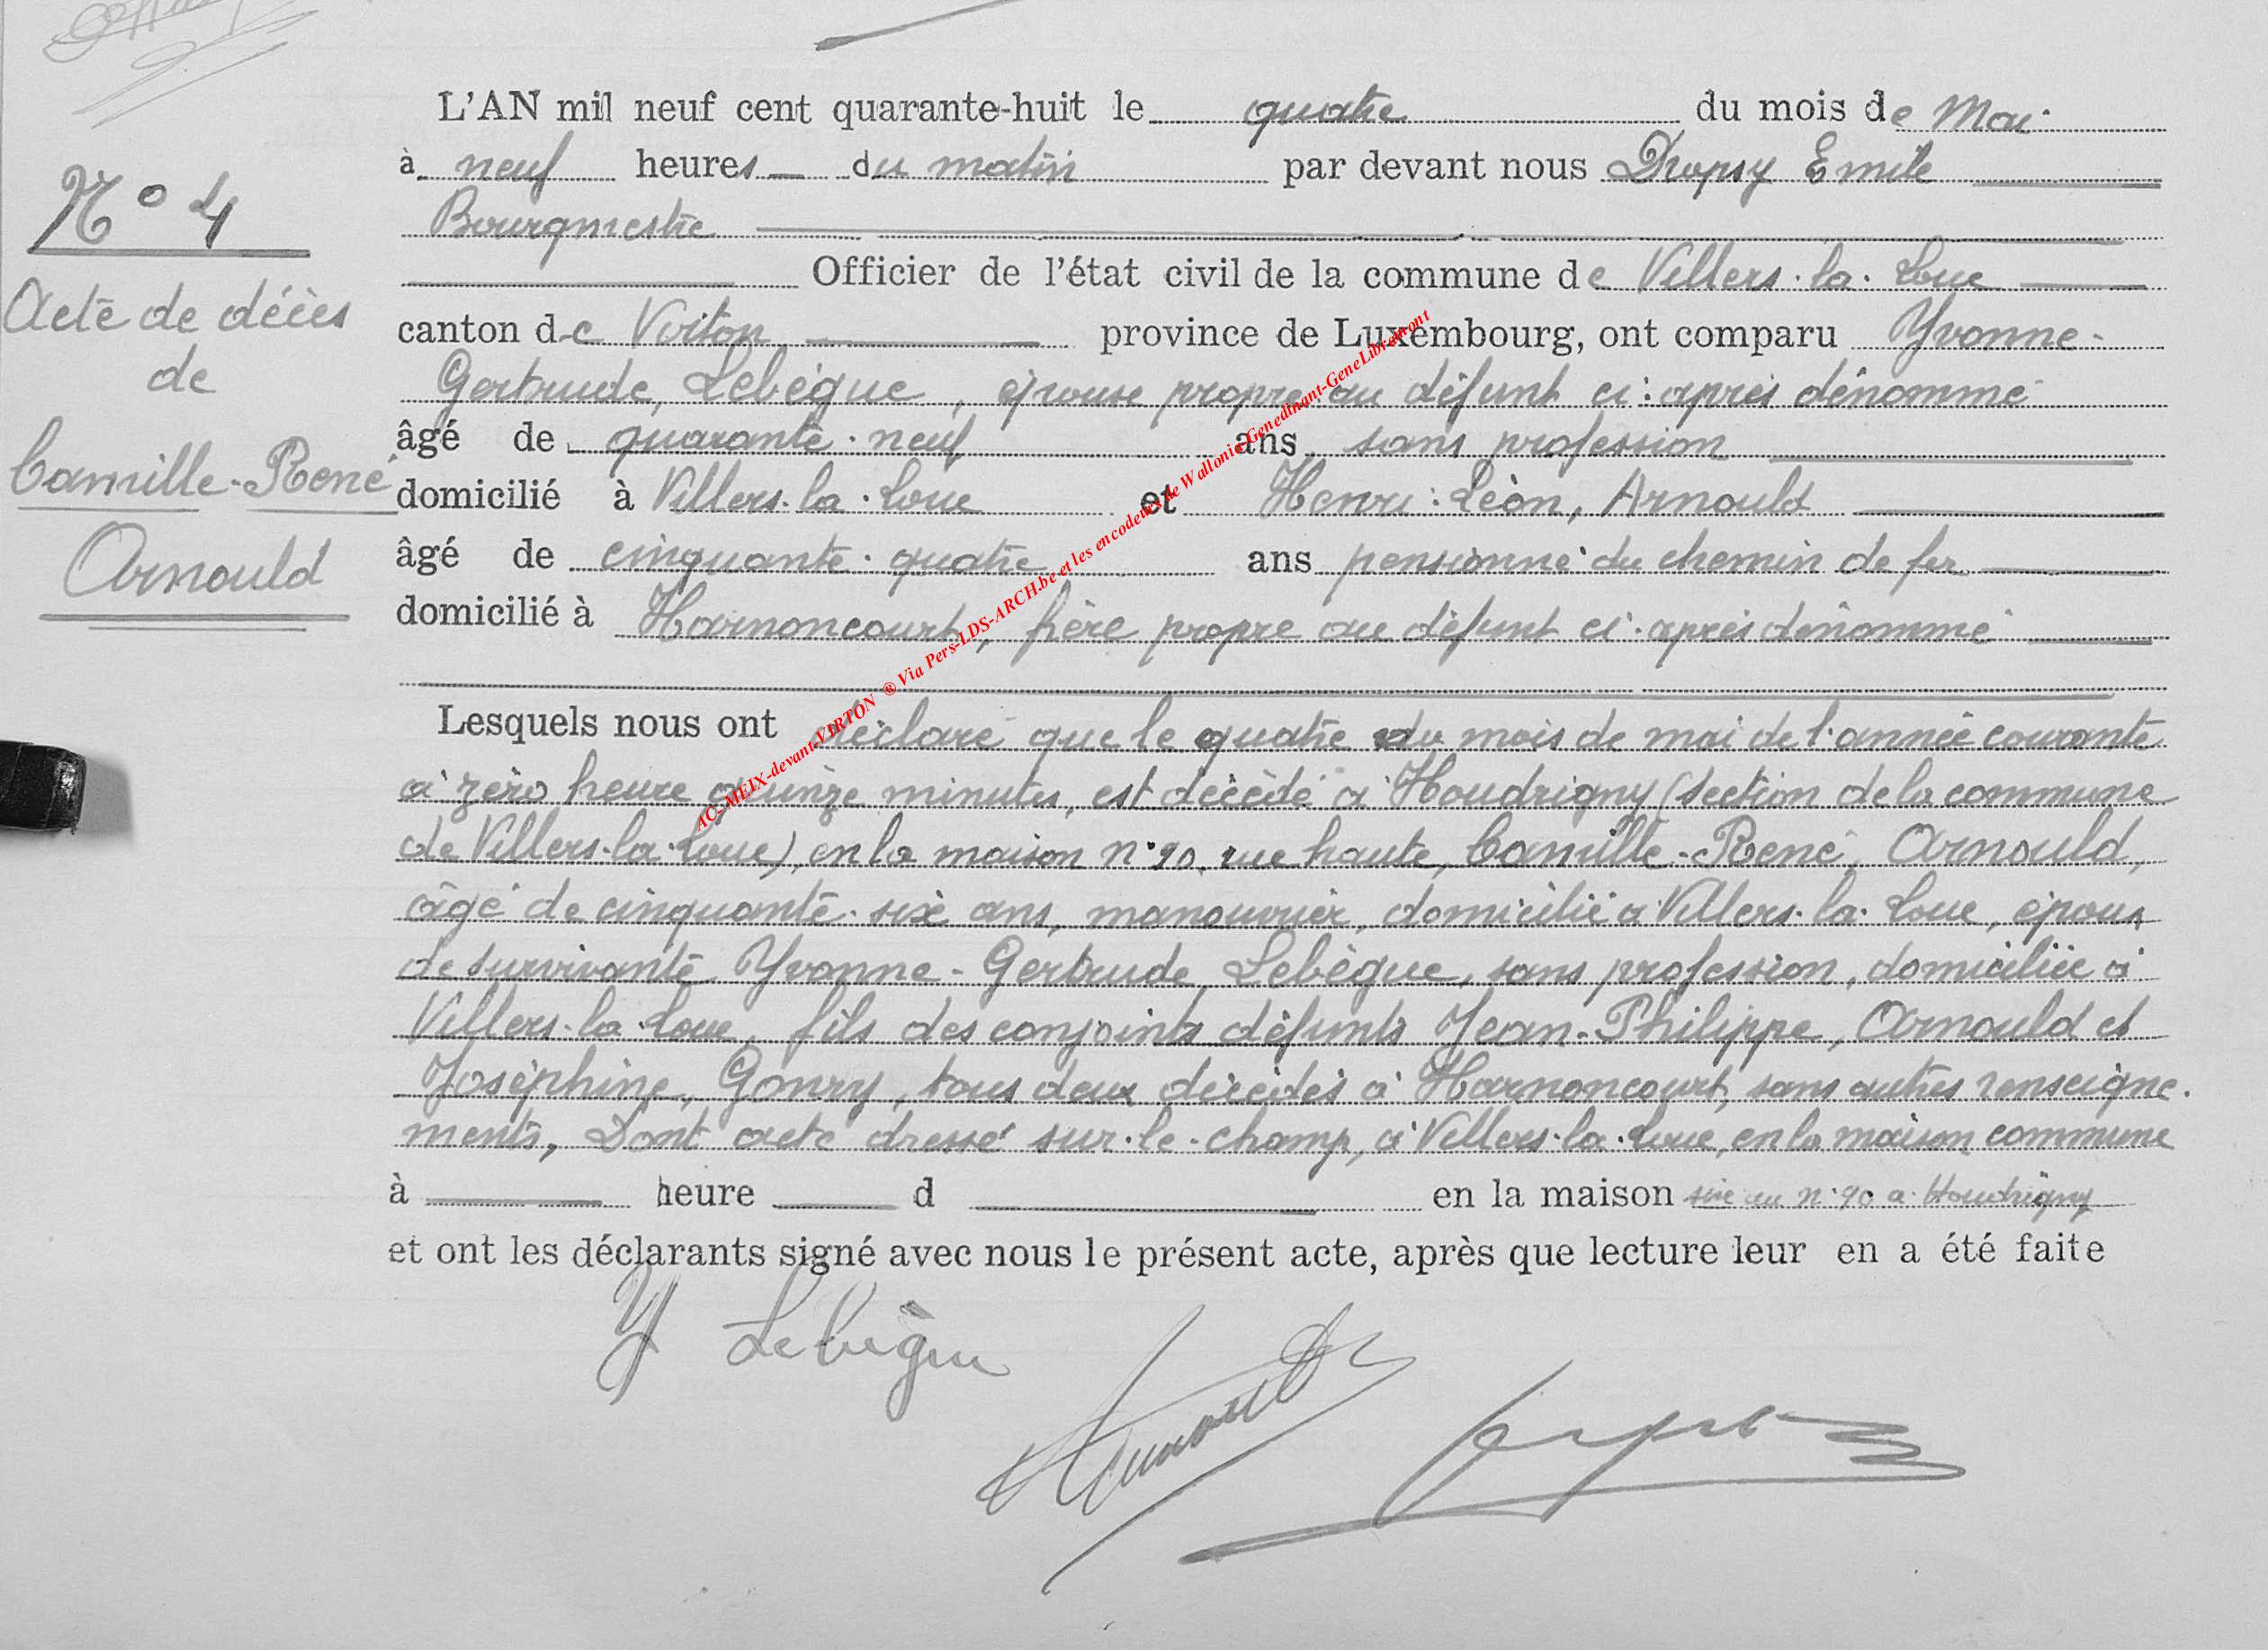 L'AN mil neuf cent quarante-huit le quatre du mois de Mai
N° 4
à neuf heures du matin par devant nous Dropsy Emile
Bourgmestre
Officier de l'état civil de la commune de Villers-la-Loue
Acte de décès
de
Camille-René
Arnould
canton de Virton province de Luxembourg, ont comparu Yvonne-
Gertrude, Lebègue, épouse propre au défunt ci-après dénommé
âgé de quarante-neuf ans sans profession
domicilié à Villers-la-Loue et Henri-Léon, Arnould
âgé de cinquante-quatre ans pensionné du chemin de fer
domicilié à Harnoncourt, frère propre au défunt ci-après dénommé
Lesquels nous ont déclaré que le quatre du mois de mai de l'année courante
à zéro heure quinze minutes, est décédé à Houdrigny (section de la commune
de Villers-la-Loue), en la maison n°90, rue haute, Camille-René, Arnould,
âgé de cinquante-six ans, manouvrier, domicilié à Villers-la-Loue, époux
de survivante Yvonne-Gertrude Lebègue, sans profession, domiciliée à
Villers-la-Loue, fils des conjoints défunts Jean-Philippe, Arnould et
Joséphine, Gonry, tous deux décédés à Harnoncourt, sans autres renseigne-
ments, Dont acte dressé sur-le-champ, à Villers-la-Loue, en la maison commune
à heure d en la maison sise au n°90 à Houdrigny
et ont les déclarants signé avec nous le présent acte, après que lecture leur en a été faite
Y Lebègue
Arnould
AC-MEIX-devant-VIRTON ® Via Pers-LDS-ARCH.be et les encodeurs de Wallonie-Genedinant-GeneLibramont